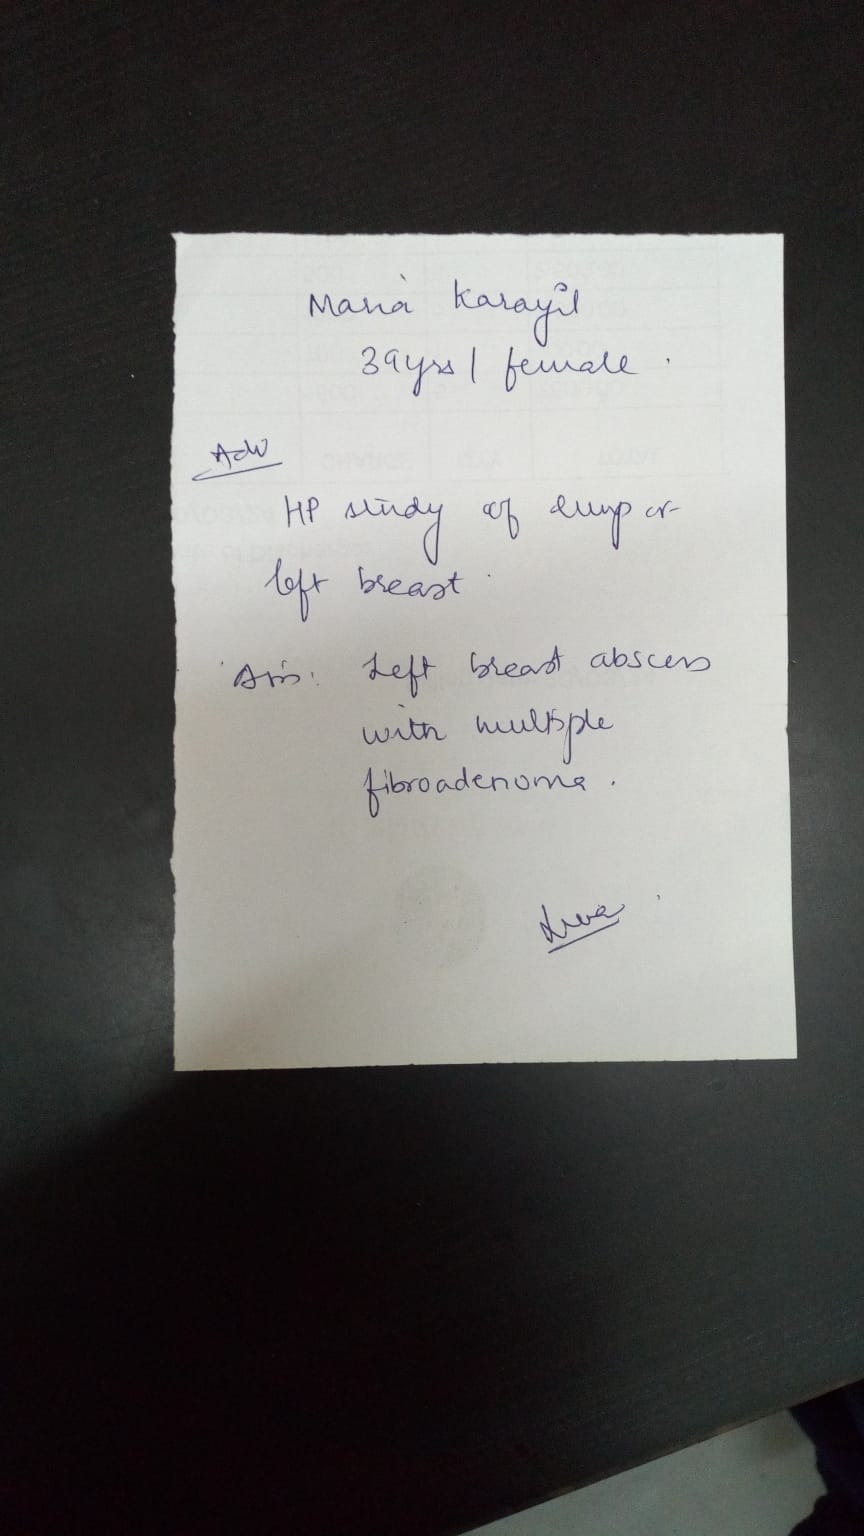 Maria Karayil
39yrs / female.
Adv
HP study of lump or
left breast.
Δsis: Left breast abscess
with multiple
fibroadenoma.